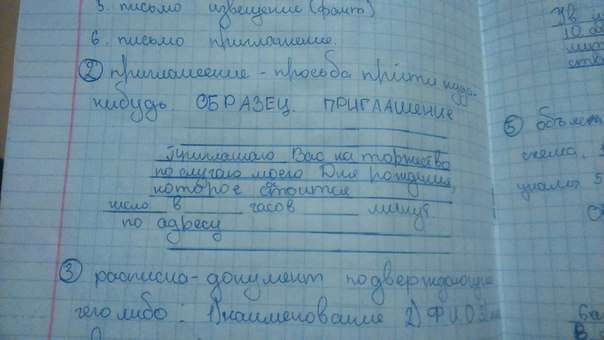 5. письмо извещение (факт)
6. письмо приглашение.
② приглашение - просьба прийти куда-
нибудь. ОБРАЗЕЦ. ПРИГЛАШЕНИЕ
Приглашаю Вас на торжество
по случаю моего Дня рождения,
которое стоится
число в ____ часов ____ минут
по адресу
③ расписка - документ подверждающий
чего либо: 1) наименование 2) ФИО
⑤ объяс
схема.